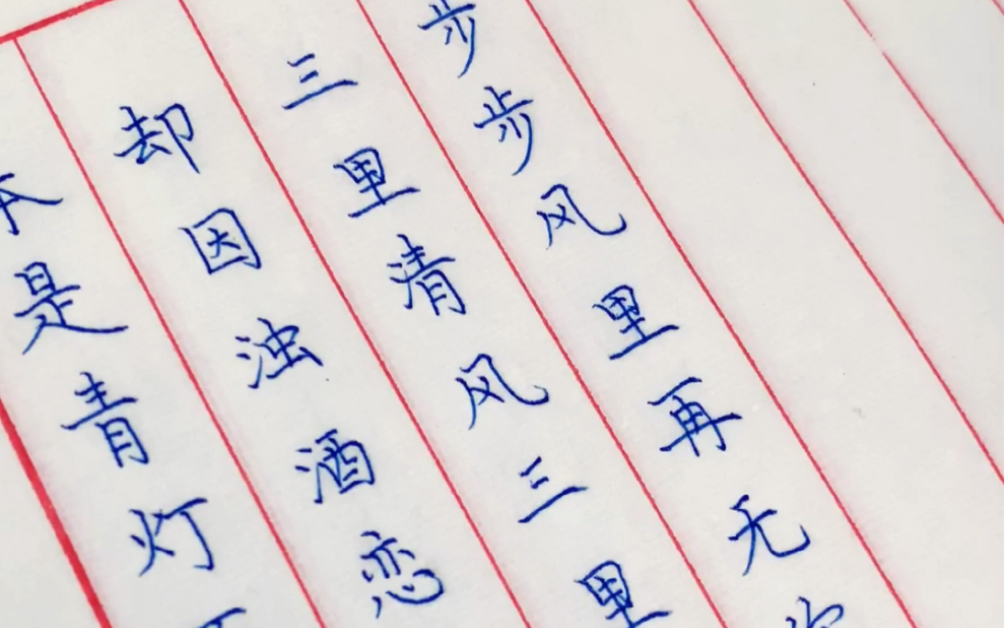 本是青灯
却因浊酒恋
三里清风三里
步步风里再无